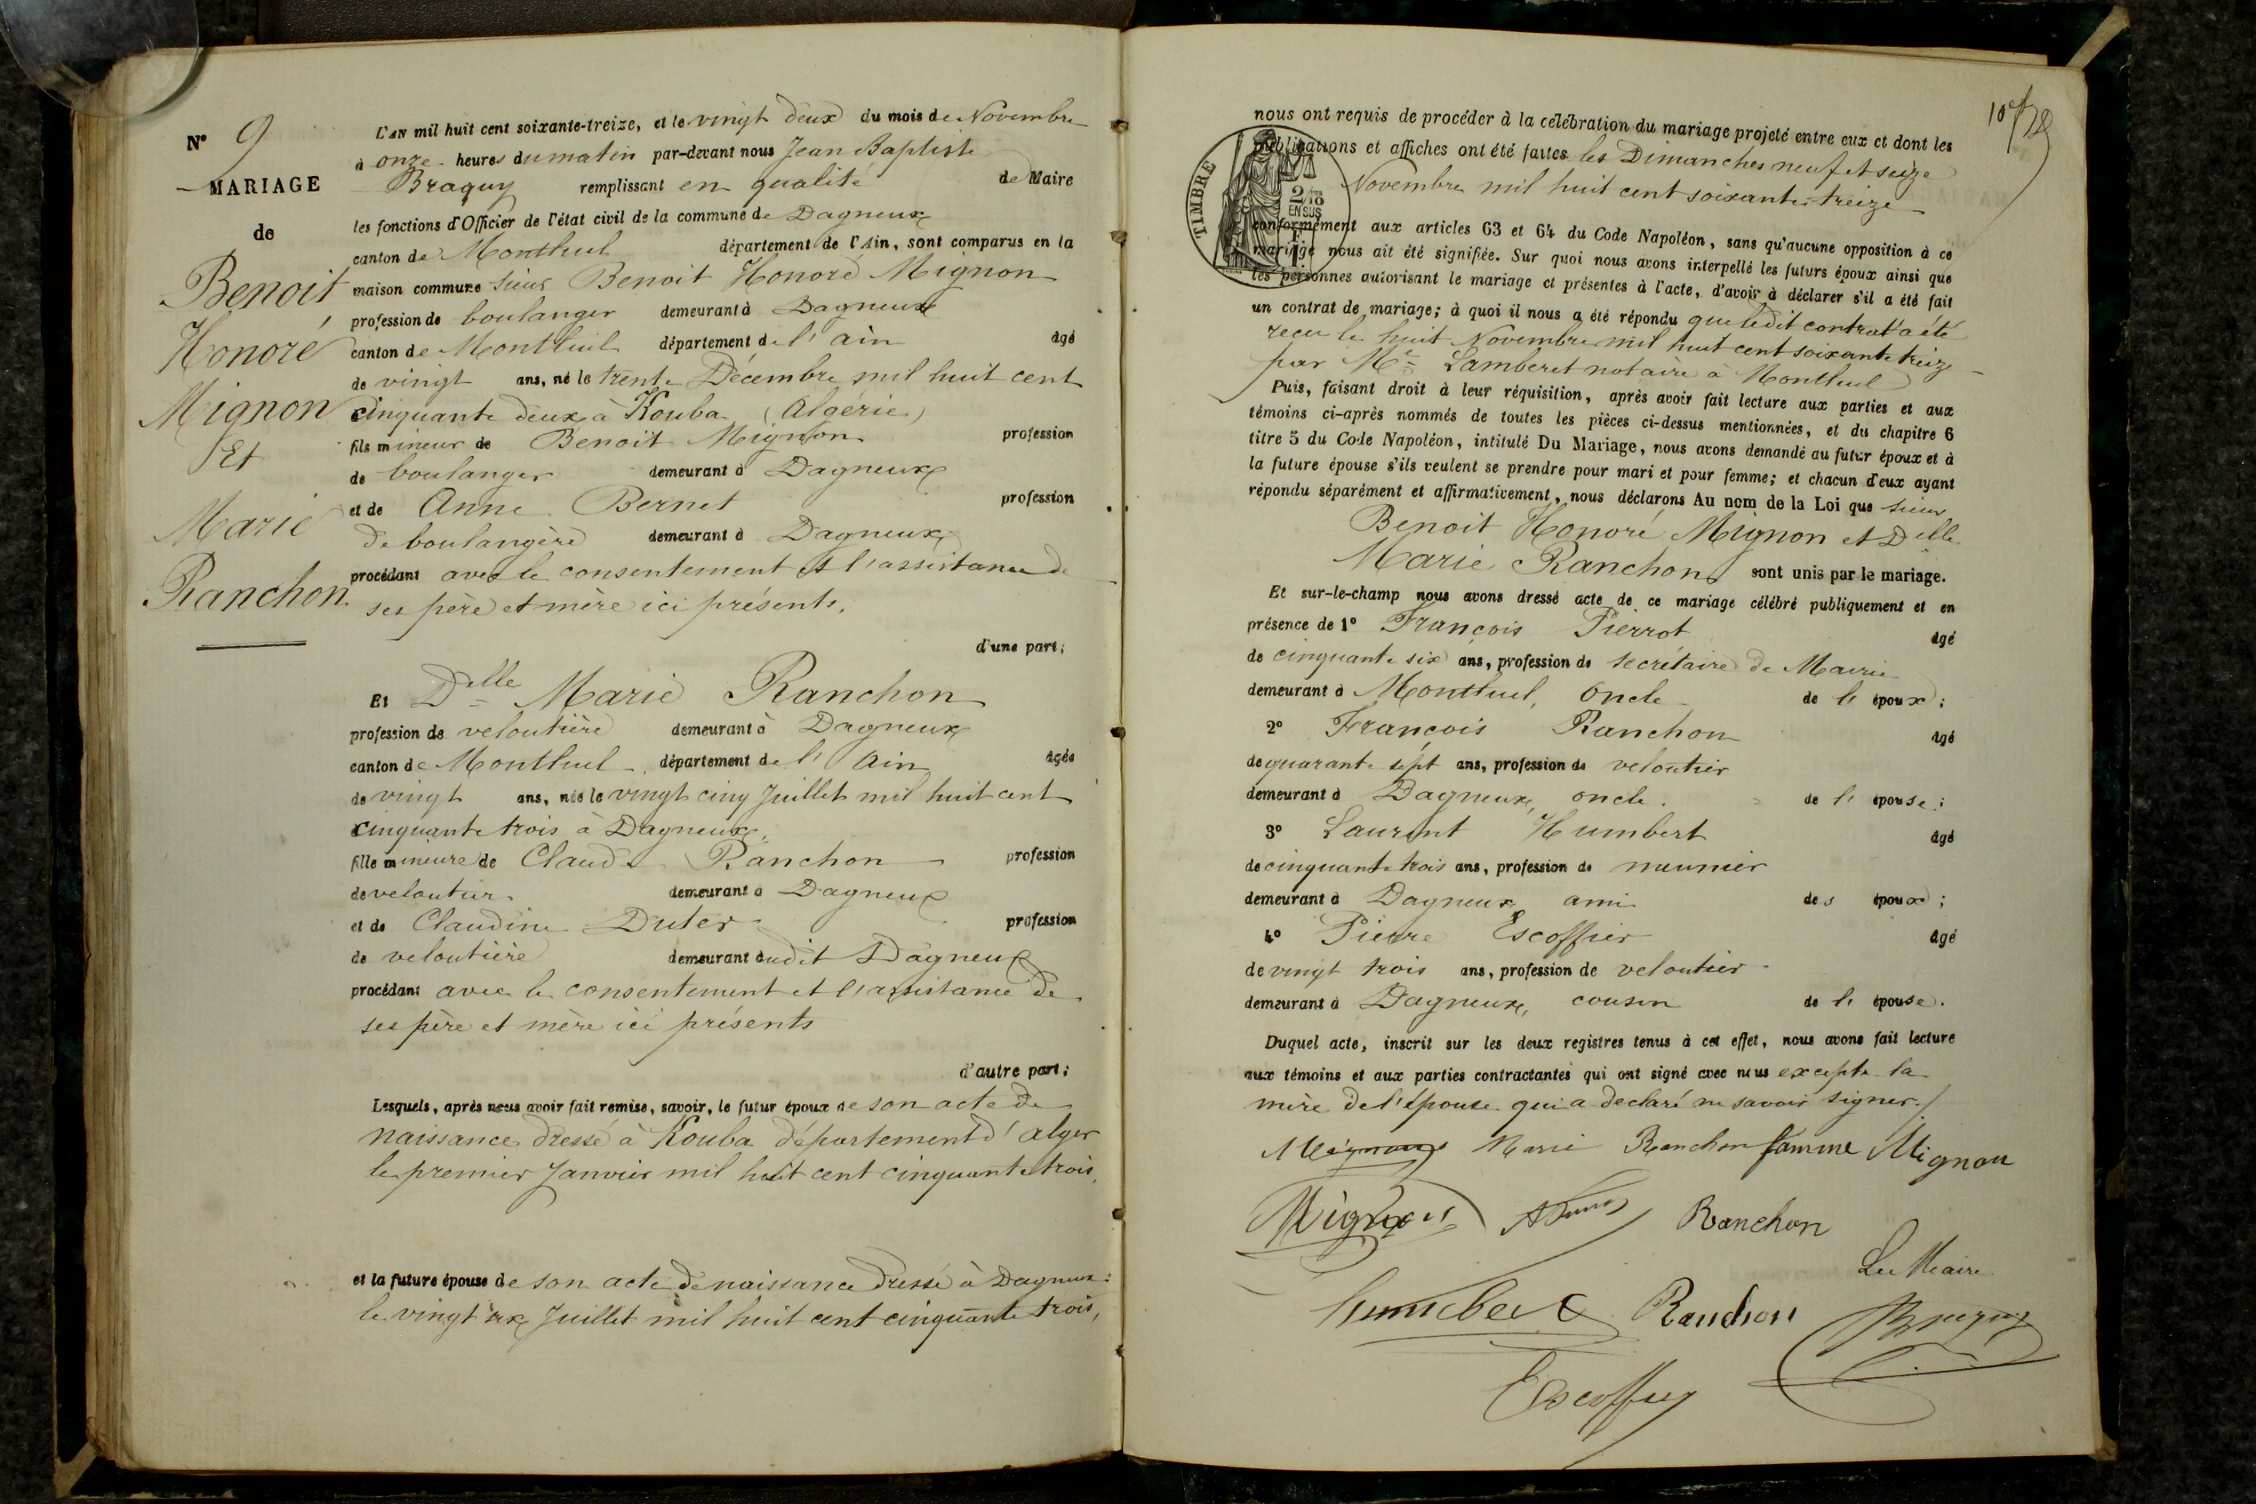 N° 9
MARIAGE
de
Benoit
Honoré
Mignon
Et
Marie
Ranchon
L'AN mil huit cent soixante-treize, et le vingt deux du mois de Novembre
à onze heures du matin par-devant nous Jean Baptiste
Braguy remplissant en qualité de Maire
les fonctions d'Officier de l'état civil de la commune de Dagneux
canton de Montluel département de l'Ain, sont comparus en la
maison commune sieur Benoit Honoré Mignon
profession de boulanger demeurant à Dagneux
canton de Montluel département de l'ain âgé
de vingt ans, né le trente Décembre mil huit cent
cinquante deux à Kouba (Algérie)
fils mineur de Benoit Mignon profession
de boulanger demeurant à Dagneux
et de Anne Bernet profession
de boulangère demeurant à Dagneux
procédant avec le consentement et l'assistance de
ses père et mère ici présents,
d'une part;
Et Delle Marie Ranchon
profession de veloutière demeurant à Dagneux
canton de Montluel département de l'Ain âgée
de vingt ans, née le vingt cinq Juillet mil huit cent
cinquante trois à Dagneux,
fille mineure de Claude Ranchon profession
de veloutier demeurant à Dagneux
et de Claudine Duter profession
de veloutière demeurant audit Dagneux
procédant avec le consentement et l'assistance de
ses père et mère ici présents
d'autre part;
Lesquels, après nous avoir fait remise, savoir, le futur époux de son acte de
naissance dressé à Kouba département d'alger
le premier Janvier mil huit cent cinquante trois,
et la future épouse de son acte de naissance dressé à Dagneux
le vingt six Juillet mil huit cent cinquante trois,
nous ont requis de procéder à la célébration du mariage projeté entre eux et dont les
publications et affiches ont été faites les Dimanches neuf et seize
Novembre mil huit cent soixante-treize
TIMBRE
2/10
EN SUS
conformément aux articles 63 et 64 du Code Napoléon, sans qu'aucune opposition à ce
mariage nous ait été signifiée. Sur quoi nous avons interpellé les futurs époux ainsi que
les personnes autorisant le mariage et présentes à l'acte, d'avoir à déclarer s'il a été fait
un contrat de mariage; à quoi il nous a été répondu que ledit contrat a été
reçu le huit Novembre mil huit cent soixante treize
par Me Lamberet notaire à Montluel
Puis, faisant droit à leur réquisition, après avoir fait lecture aux parties et aux
témoins ci-après nommés de toutes les pièces ci-dessus mentionnées, et du chapitre 6
titre 5 du Code Napoléon, intitulé Du Mariage, nous avons demandé au futur époux et à
la future épouse s'ils veulent se prendre pour mari et pour femme; et chacun d'eux ayant
répondu séparément et affirmativement, nous déclarons Au nom de la Loi que sieur
Benoit Honoré Mignon et Delle
Marie Ranchon sont unis par le mariage.
Et sur-le-champ nous avons dressé acte de ce mariage célébré publiquement et en
présence de 1° François Pierrot âgé
de cinquante six ans, profession de secrétaire de Mairie
demeurant à Montluel, oncle de l'époux;
2° François Ranchon âgé
de quarante sept ans, profession de veloutier
demeurant à Dagneux, oncle de l'épouse;
3° Laurent Humbert âgé
de cinquante trois ans, profession de meunier
demeurant à Dagneux ami des époux;
4° Pierre Escoffier âgé
de vingt trois ans, profession de veloutier
demeurant à Dagneux, cousin de l'épouse.
Duquel acte, inscrit sur les deux registres tenus à cet effet, nous avons fait lecture
aux témoins et aux parties contractantes qui ont signé avec nous excepté la
mère de l'épouse qui a declaré ne savoir signer.
Mignon Marie Ranchon famme Mignon
Mignon Ranchon
Le Maire
humbert Ranchon Braguy
Escoffier